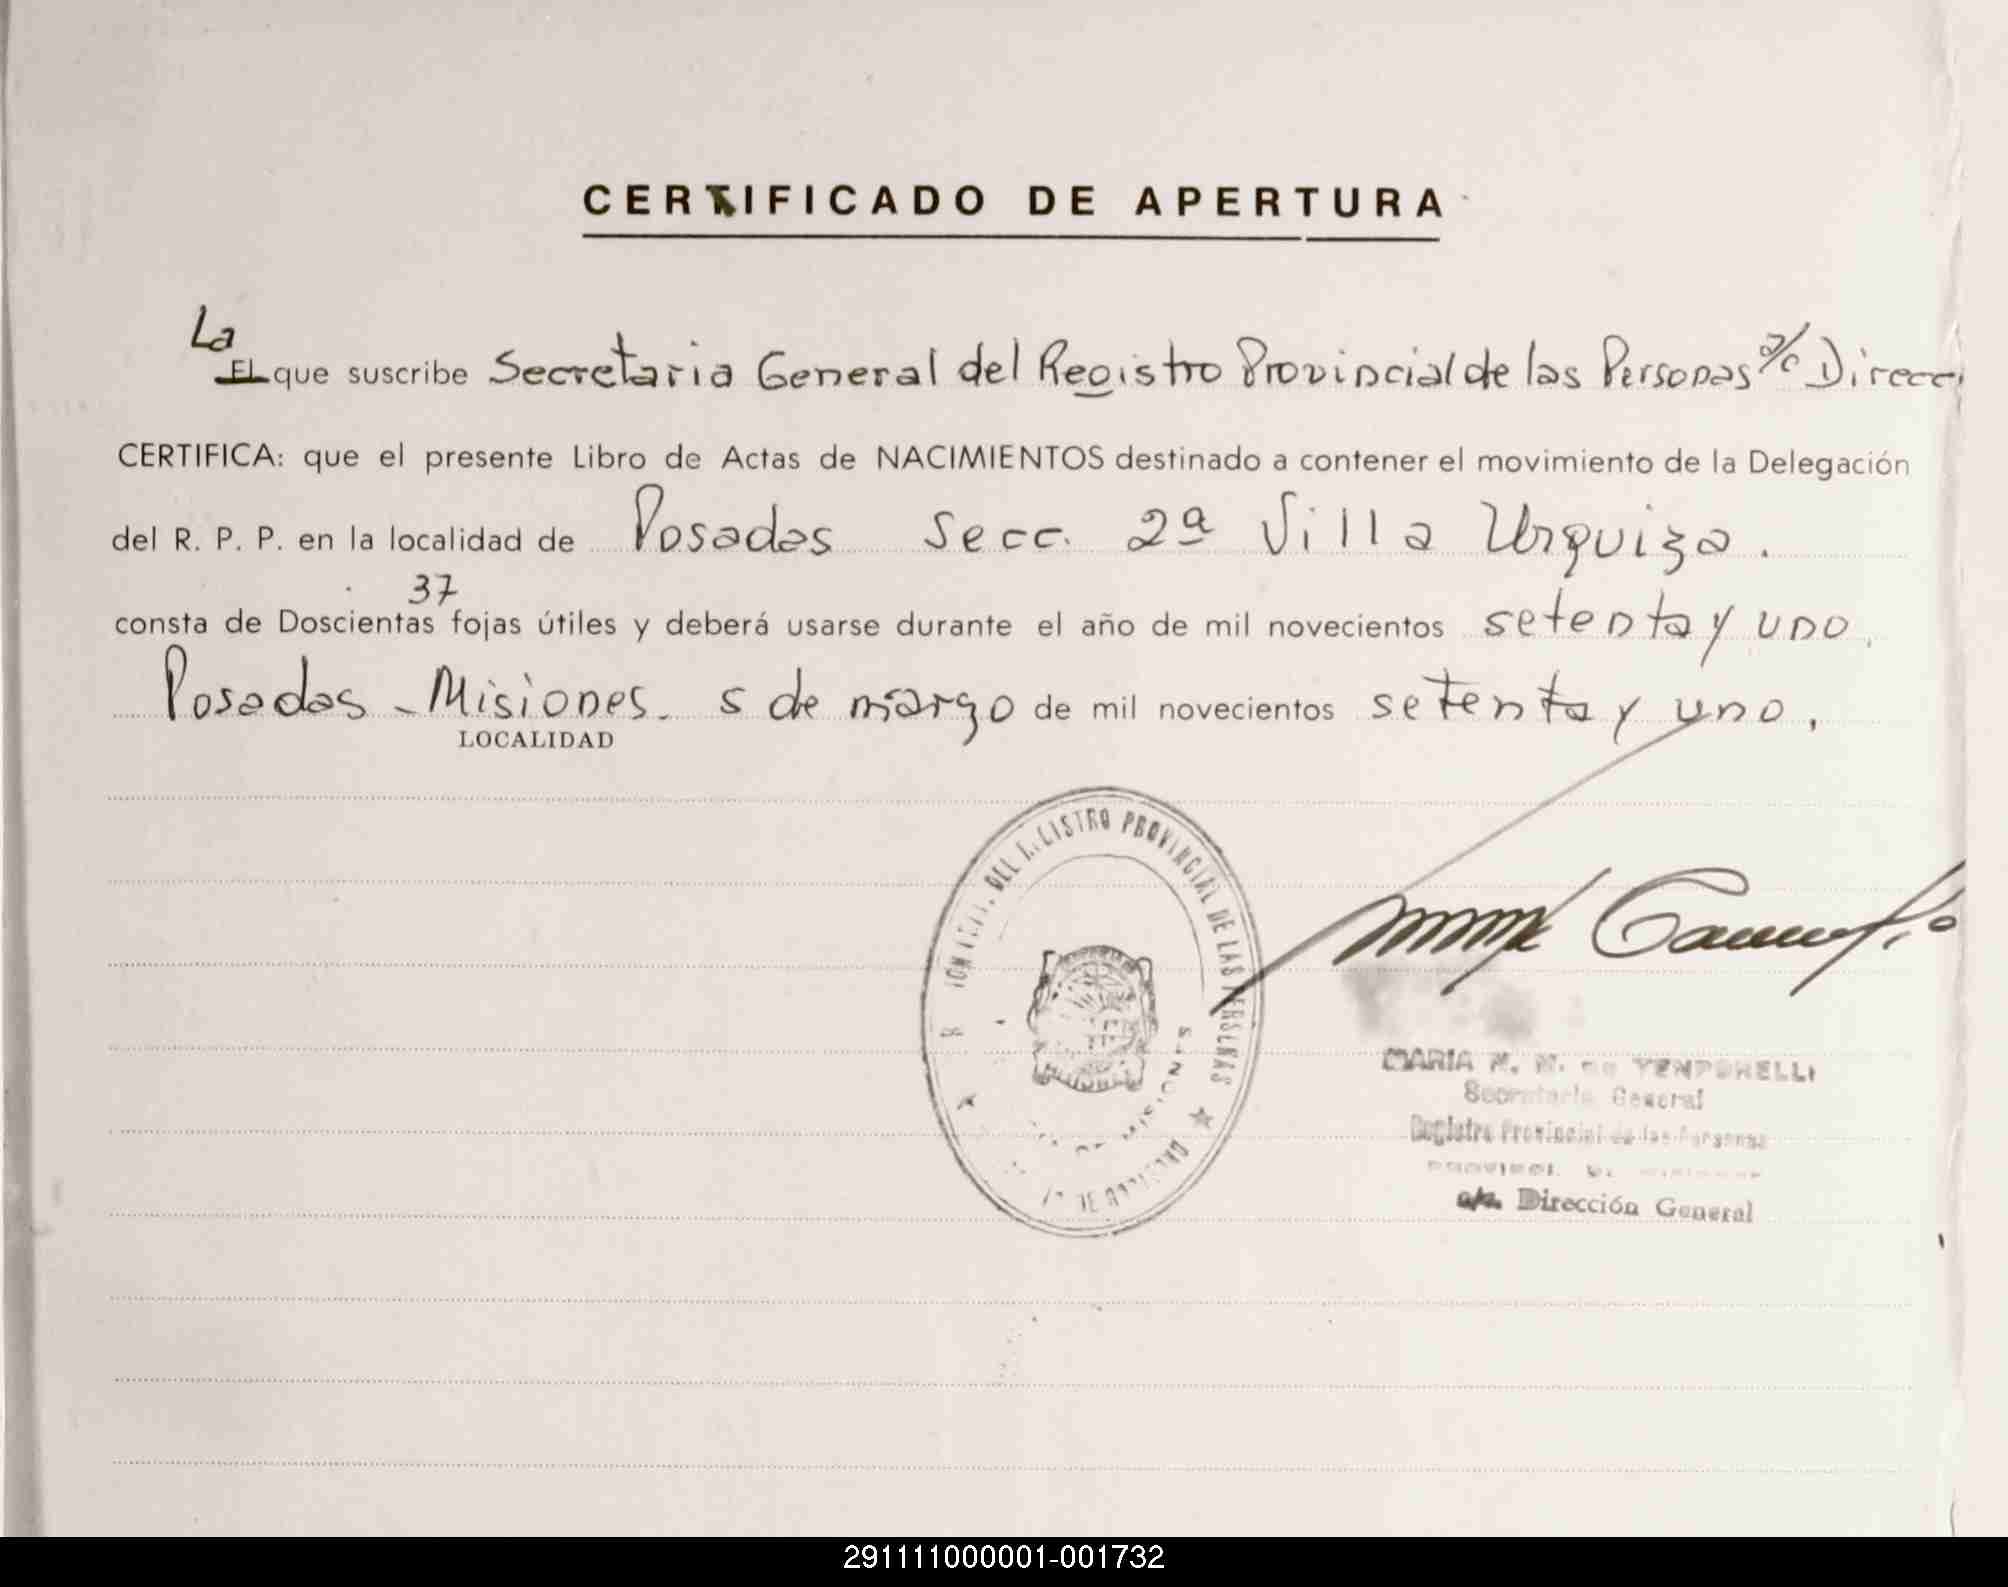 CERTIFICADO DE APERTURA
La
El que suscribe Secretaria General del Registro Provincial de las Personas a/c Direcc
CERTIFICA: que el presente Libro de Actas de NACIMIENTOS destinado a contener el movimiento de la Delegación
del R. P. P. en la localidad de Posadas Secc. 2ª Villa Urquiza.
37
consta de Doscientas fojas útiles y deberá usarse durante el año de mil novecientos setenta y uno.
Posadas - Misiones. 5 de marzo de mil novecientos setenta y uno.
LOCALIDAD
PROVINCIAL DE LAS PERSONAS
MARIA
Secretaria General
Registro Provincial de las Personas
a/c. Dirección General
291111000001-001732